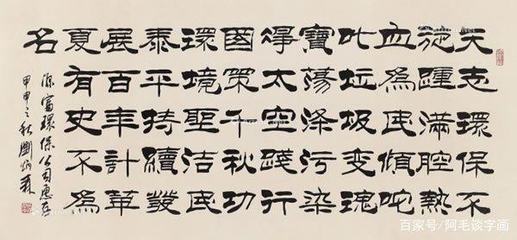 矢志環保不
旋踵滿腔熱
血為民傾咤
叱垃圾變瑰
寶蕩滌污染
得太空踐行
國策千秋功
環境聖潔民
泰平持續發
展百年計華
夏有史不為
名
源富環保公司惠存
甲申之秋劉炳森
百家号/阿毛谈字画